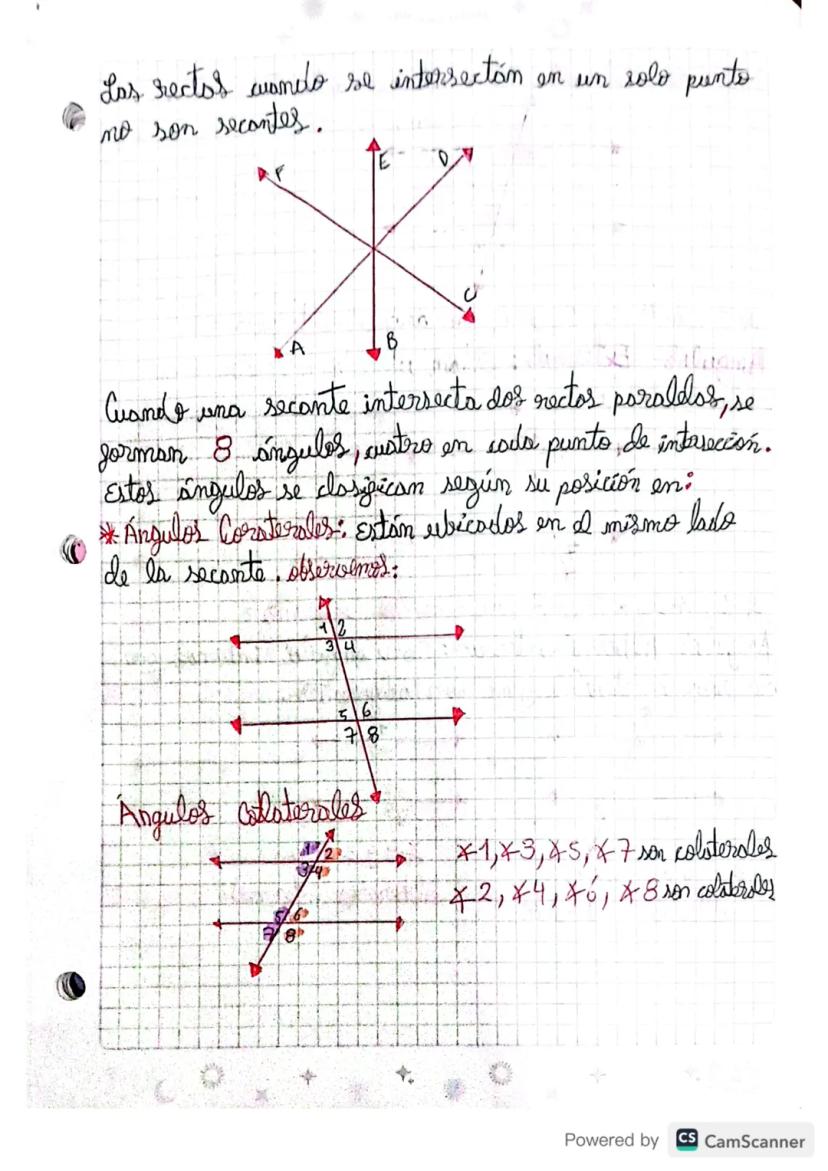 Las rectas cuando se intersectán en un solo punto
no son secantes.
F
E
D
C
A
B
Cuando una secante intersecta dos rectas paralelas, se
forman 8 ángulos, cuatro en cada punto de intersección.
Estos ángulos se clasifican según su posición en:
* Ángulos Coraterales: Están ubicados en el mismo lado
de la secante. observemos:
1 2
3 4
5 6
7 8
Ángulos Colaterales
1 2
3 4
5 6
7 8
∡1, ∡3, ∡5, ∡7 son colaterales
∡2, ∡4, ∡6, ∡8 son colaterales
Powered by CS CamScanner